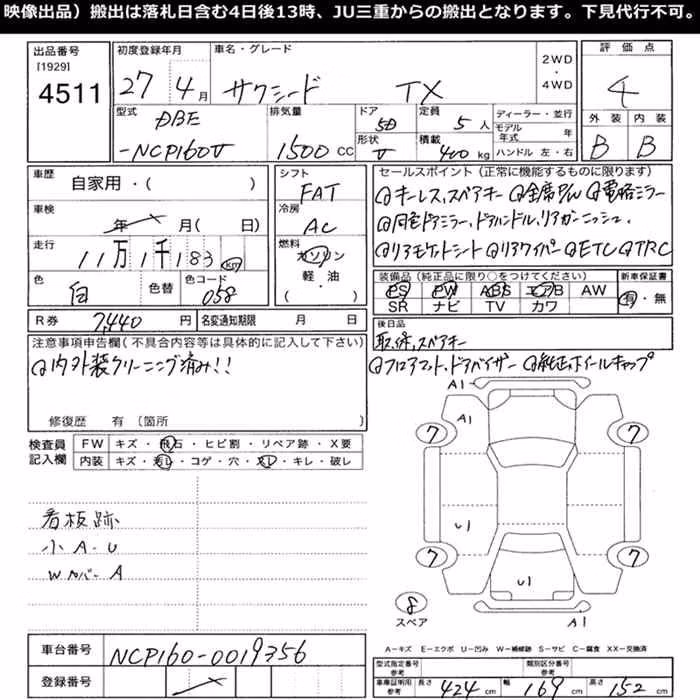 映像出品）搬出は落札日含む4日後13時、JU三重からの搬出となります。下見代行不可。
出品番号 初度登録年月 車名・グレード 2WD・4WD 評価点
[1929]
4511 27年4月 サクシード TX 4
型式 排気量 ドア 定員 ディーラー・並行 外装 内装
DBE-NCP160V 1500CC 5D 5人 モデル年式 年 B B
形状 V 積載 400kg ハンドル 左・右
車歴 自家用・( ) シフト FAT セールスポイント（正常に機能するものに限ります）
車検 年 月( 日) 冷房 AC ◎キーレス,スペアキー ◎全席P/W ◎電格ミラー
走行 11万1千183km 燃料 ガソリン 軽・油 ( ) ◎同色ドアミラー,ドアハンドル,リアガーニッシュ,
◎リアモケットシート ◎リアワイパー ◎ETC ◎TRC
色 白 色替 色コード 058 装備品（純正品に限り○をつけてください） 新車保証書
PS PW ABS エアB AW 有・無
SR ナビ TV カワ
R券 7,440円 名変通知期限 月 日 後日品
注意事項申告欄（不具合内容等は具体的に記入して下さい） 取,保,スペアキー
◎内外装クリーニング済み!! ◎フロアマット,ドアバイザー ◎純正ホイールキャップ
修復歴 有 〔箇所 〕
検査員記入欄 FW キズ・飛石・ヒビ割・リペア跡・X要
内装 キズ・汚レ・コゲ・穴・スレ・キレ・破レ
A1
A1
7 7
看板跡
小A・U U1
Wカバー A 7 7
U1
8
スペア A1
A－キズ E－エクボ U－凹み W－補修跡 S－サビ C－腐食 XX－交換済
車台番号 NCP160-0019356
型式指定番号 参考 類別区分番号 参考
登録番号 車庫証明用 参考 長さ 424cm 幅 169cm 高さ 152cm